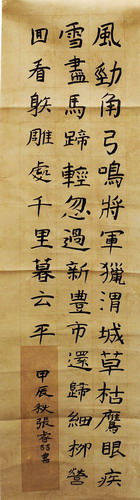 風勁角弓鳴將軍獵渭城草枯鷹眼疾
雪盡馬蹄輕忽過新豊市還歸細柳營
回看射雕處千里暮云平
甲辰秋張睿書